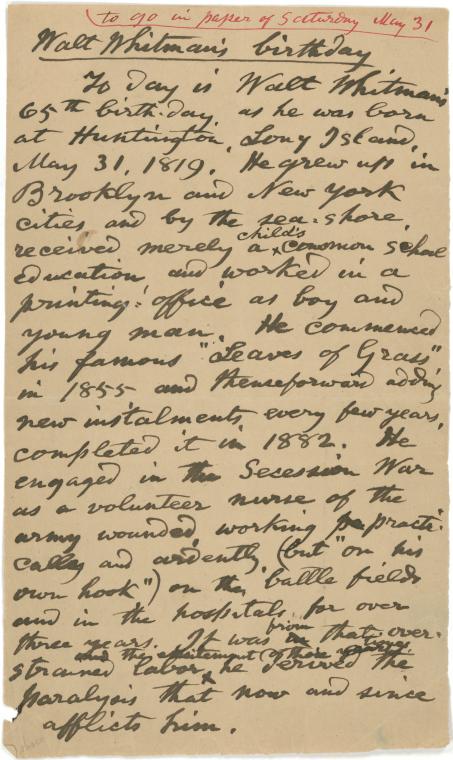 to go in paper of Saturday May 31
Walt Whitman's birthday
To day is Walt Whitman's
65th birth-day, as he was born
at Huntington, Long Island,
May 31, 1819. He grew up in
Brooklyn and New York
cities and by the sea-shore,
received merely a child's common school
education and worked in a
printing-office as boy and
young man. He commenced
his famous "Leaves of Grass"
in 1855 and thenseforward adding
new instalments every few years,
completed it in 1882. He
engaged in the Secession War
as a volunteer nurse of the
army wounded, working practi-
cally and ardently (but "on his
own hook") on the battle fields
and in the hospitals for over
three years. It was from that over-
strained labor, and the excitement of those times he derived the
paralysis that now and since
afflicts him.